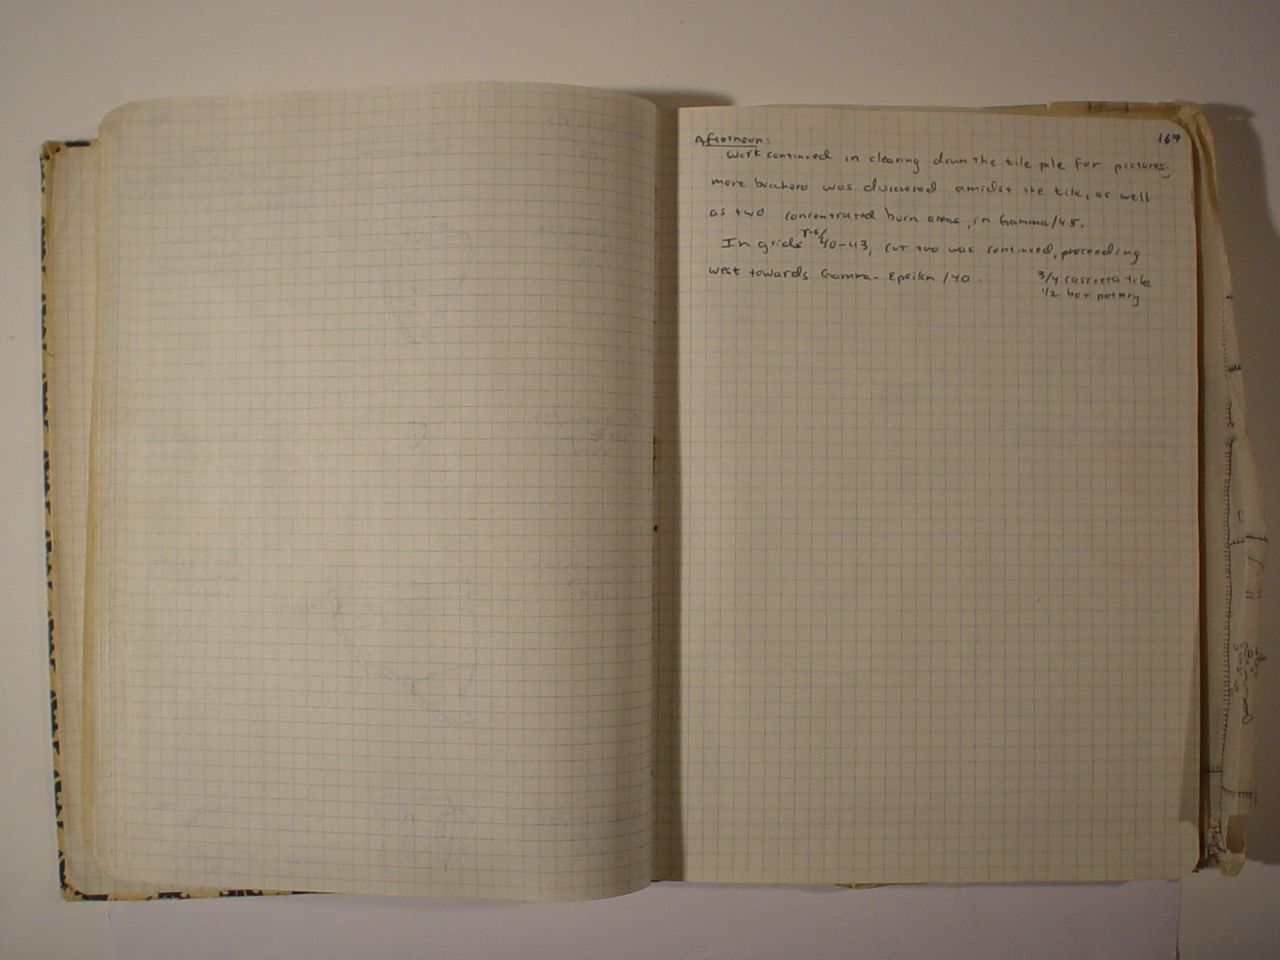 167
Afternoon:
Work continued in clearing down the tile pile for pictures;
more bucchero was discovered amidst the tile, as well
as two concentrated burn areas, in Gamma/45.
In grids Γ-E/40-43, cut two was continued, proceeding
west towards Gamma-Epsilon/40.
3/4 cassetta tile
1/2 box pottery